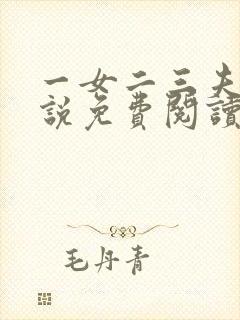 一女二三夫
説免費閱讀
毛丹青